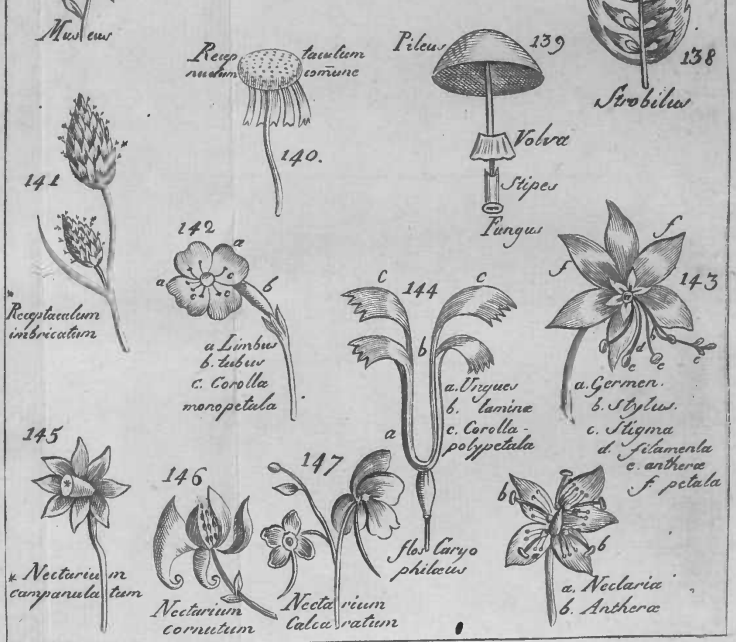 Museus
Recep taculum
nudum comune
140.
Pileus
139
Volva
Stipes
Fungus
138
Strobilus
141
* Receptaculum
imbricatum
142
a
a
c c
c c
b
a Limbus
b. tubus
c. Corolla
monopetala
c 144 c
b
a
a. Ungues
b. laminæ
c. Corolla-
polypetala
flos Caryo
philæus
143
f
f
a
b
d
c
e e
a. Germen.
b. Stylus.
c. Stigma
d. filamenta
e. antheræ
f. petala
145
*
* Nectarium
campanulatum
146
Nectarium
cornutum
147
Nectarium
Calcaratum
b
b
a. Nectaria
b. Antheræ